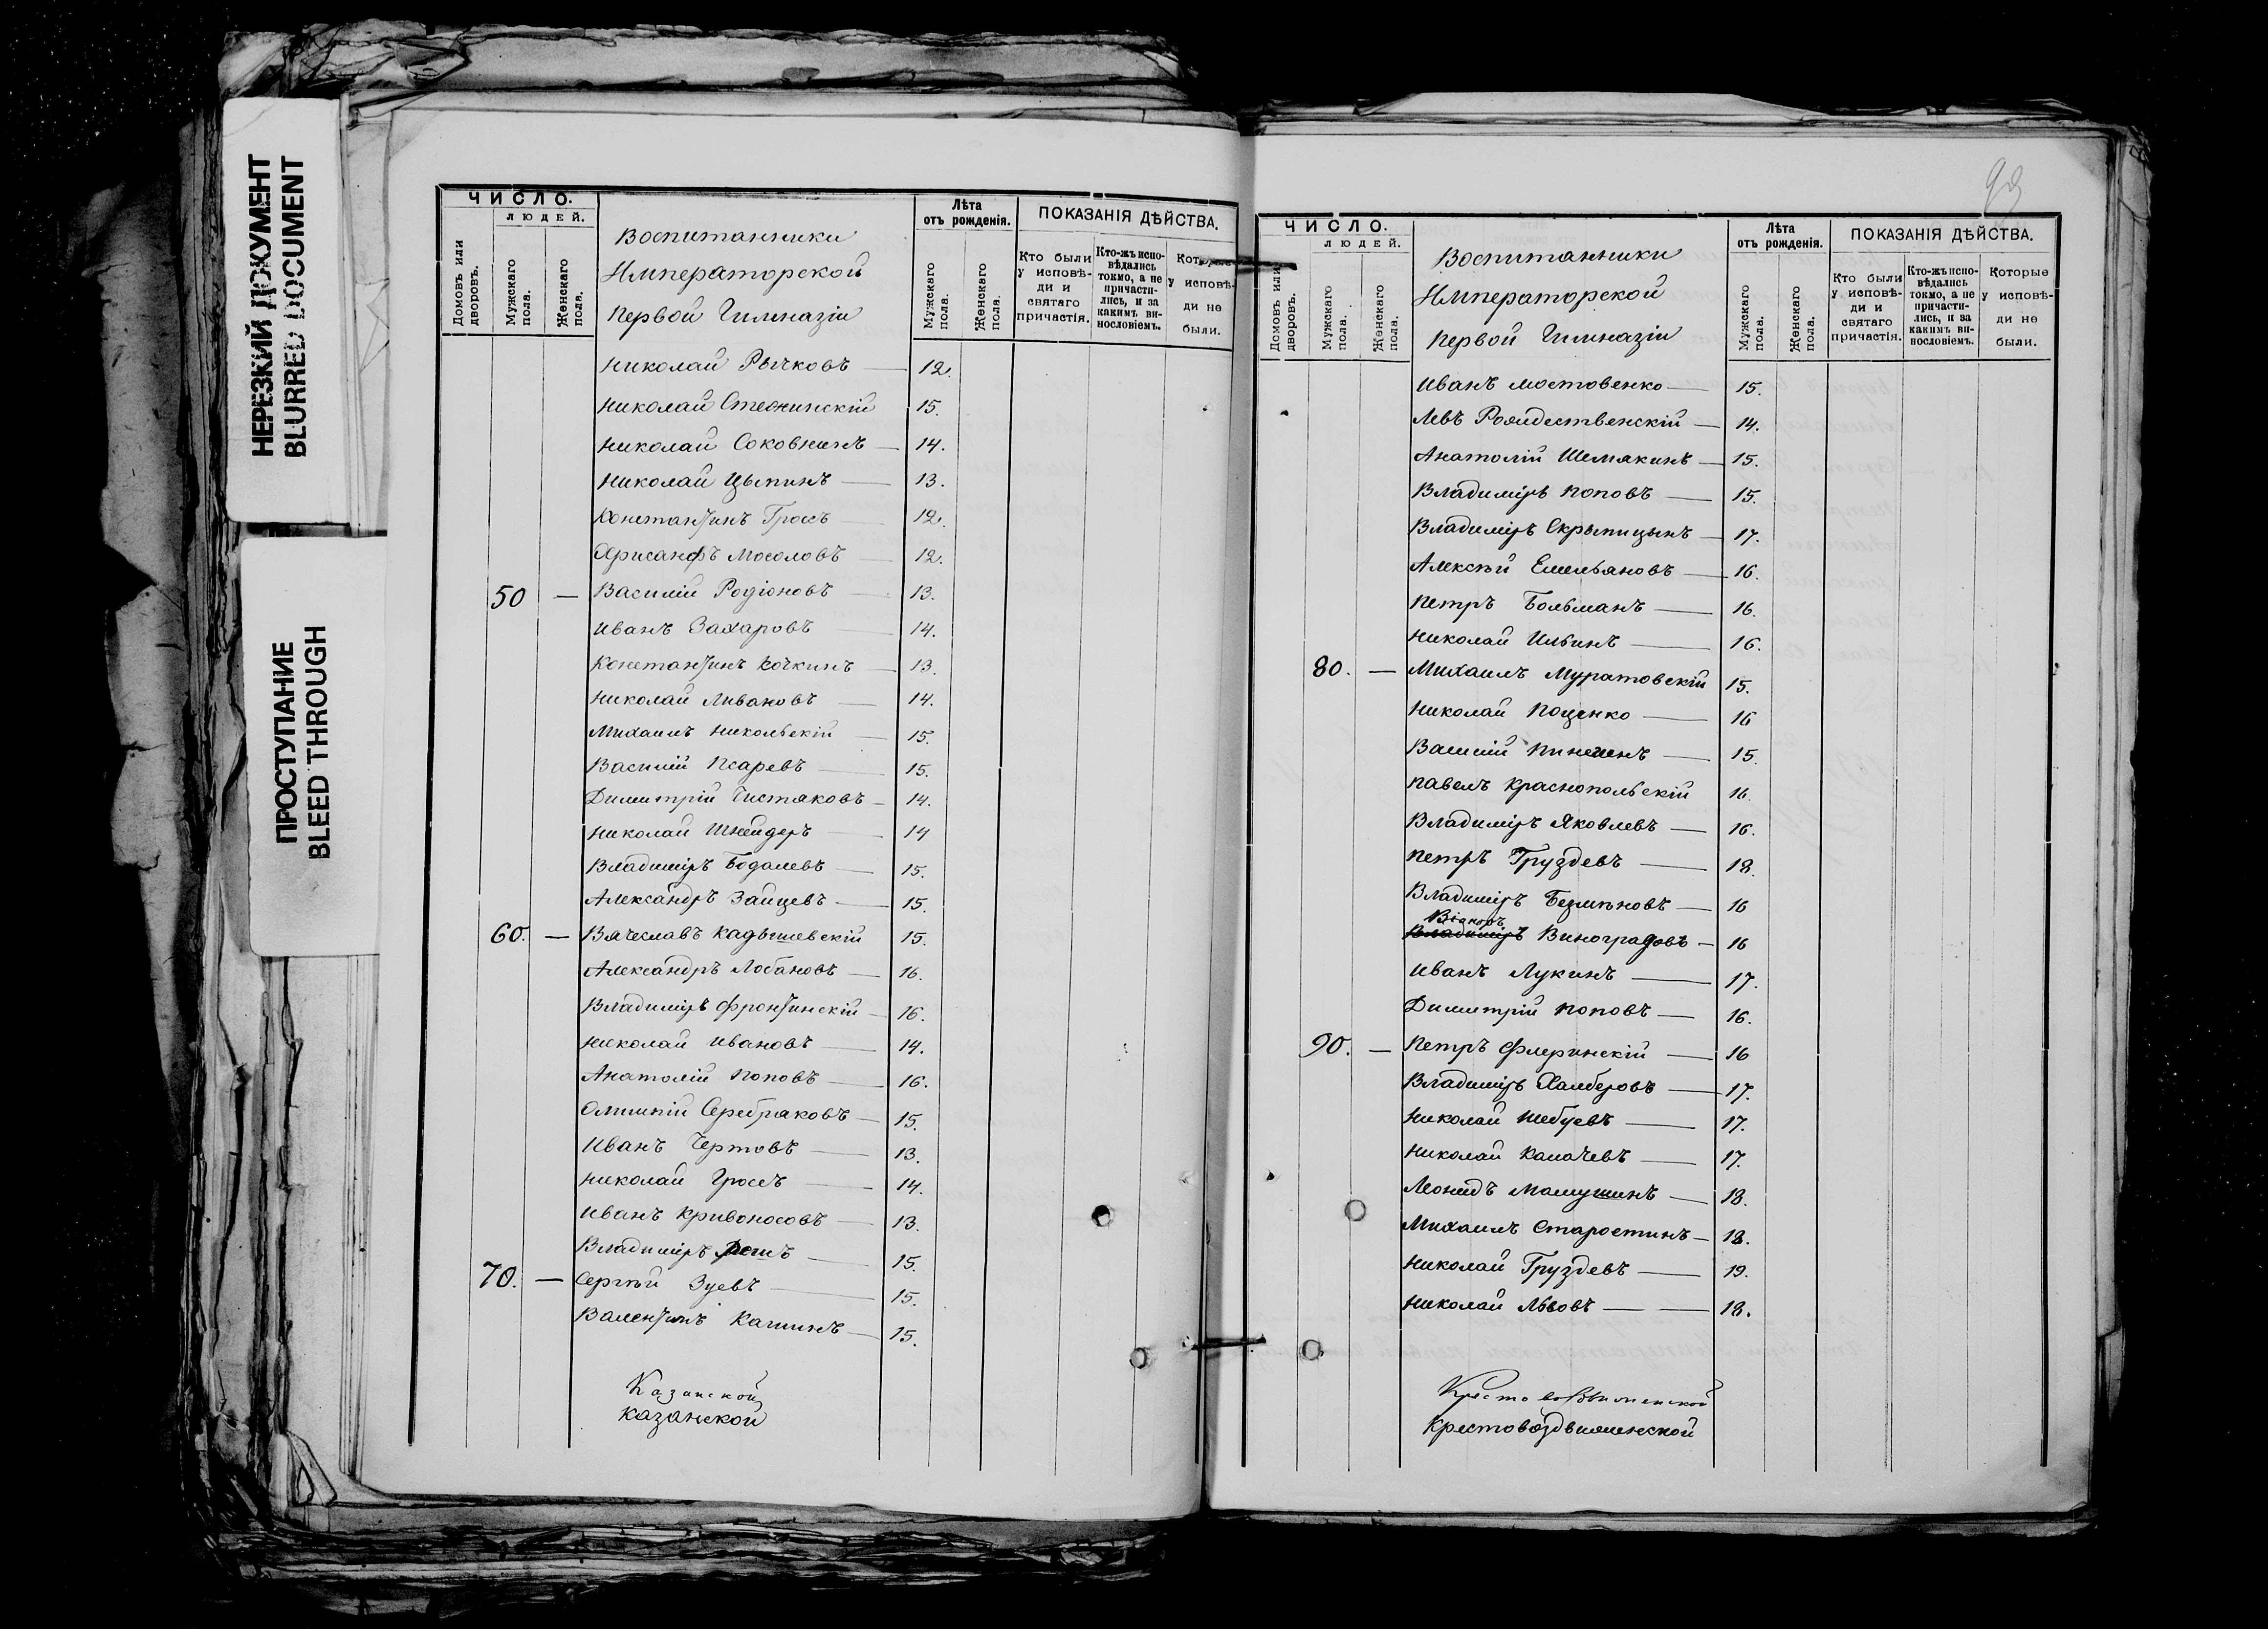 НЕРЕЗКИЙ ДОКУМЕНТ
BLURRED DOCUMENT
ПРОСТУПАНИЕ
BLEED THROUGH
ЧИСЛО.
ЛЮДЕЙ.
Домовъ или дворовъ.
Мужскаго пола.
Женскаго пола.
Воспитанники
Императорской
Первой Гимназіи
Лѣта
отъ рожденія.
Мужскаго пола.
Женскаго пола.
ПОКАЗАНІЯ ДѢЙСТВА.
Кто были у исповѣди и святаго причастія.
Кто-жъ исповѣдались токмо, а не причастились, и за какимъ винословіемъ.
Которые у исповѣди не были.
Николай Рычковъ — 12.
Николай 15.
Николай Соковнинъ — 14.
Николай Цыпинъ — 13.
Константинъ Гроссъ — 12.
Хрисанфъ Мосоловъ — 12.
50 — Василій Родіоновъ — 13.
Иванъ Захаровъ — 14.
Константинъ Кочкинъ — 13.
Николай Ливановъ — 14.
Михаилъ Никольскій — 15.
Василій Псаревъ — 15.
Димитрій Чистяковъ — 14.
Николай Шнейдеръ — 14
Владиміръ Бодалевъ — 15.
Александръ Зайцевъ — 15.
60. — Вячеславъ Кадышевскій 15.
Александръ Лобановъ — 16.
Владиміръ Фронтинскій — 16.
Николай Ивановъ — 14.
Анатолій Поповъ — 16.
Серебряковъ — 15.
Иванъ Чертовъ — 13.
Николай Гроссъ — 14.
Иванъ Кривоносовъ — 13.
Владиміръ — 15.
70. — Сергѣй Зуевъ — 15.
Валентинъ Кашинъ — 15.
Казанской
Казанской
99
ЧИСЛО.
ЛЮДЕЙ.
Домовъ или дворовъ.
Мужскаго пола.
Женскаго пола.
Воспитанники
Императорской
Первой Гимназіи
Лѣта
отъ рожденія.
Мужскаго пола.
Женскаго пола.
ПОКАЗАНІЯ ДѢЙСТВА.
Кто были у исповѣди и святаго причастія.
Кто-жъ исповѣдались токмо, а не причастились, и за какимъ винословіемъ.
Которые у исповѣди не были.
Иванъ Мостовенко — 15.
Левъ Рождественскій — 14.
Анатолій Шемякинъ — 15.
Владиміръ Поповъ — 15.
Владиміръ Скрыпицынъ — 17.
Алексѣй Емельяновъ — 16.
Петръ Больманъ — 16.
Николай Ильинъ — 16.
80. — Михаилъ Муратовскій 15.
Николай Поценко — 16
Василій Пинегинъ — 15.
Павелъ Краснопольскій 16.
Владиміръ Яковлевъ — 16.
Петръ Груздевъ — 18.
Владиміръ Безмѣновъ — 16
Владиміръ Виноградовъ — 16
Иванъ Лукинъ — 17.
Димитрій Поповъ — 16.
90. — Петръ Флеринскій — 16
Владиміръ Халберовъ — 17.
Николай Шебуевъ — 17.
Николай Калачевъ — 17.
Леонидъ Мамушинъ — 18.
Михаилъ Старостинъ — 18.
Николай Груздевъ — 19.
Николай Львовъ — 18.
Крестовоздвиженской
Крестовоздвиженской